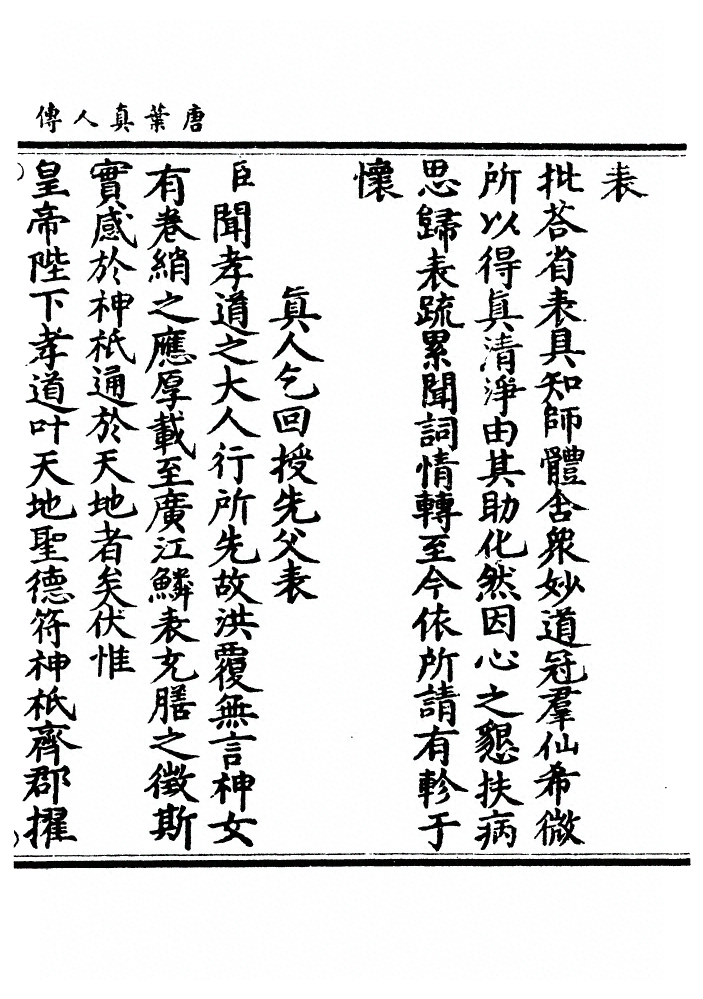 唐葉真人傳
表
批荅省表具知師體含衆妙道冠羣仙希微
所以得真清淨由其助化然因心之懇扶病
思歸表疏累聞詞情轉至今依所請有軫于
懷
真人乞回授先父表
臣聞孝道之大人行所先故洪覆無言神女
有卷綃之應厚載至廣江鱗表充膳之徵斯
實感於神祇通於天地者矣伏惟
皇帝陛下孝道叶天地聖德符神祇齊郡擢